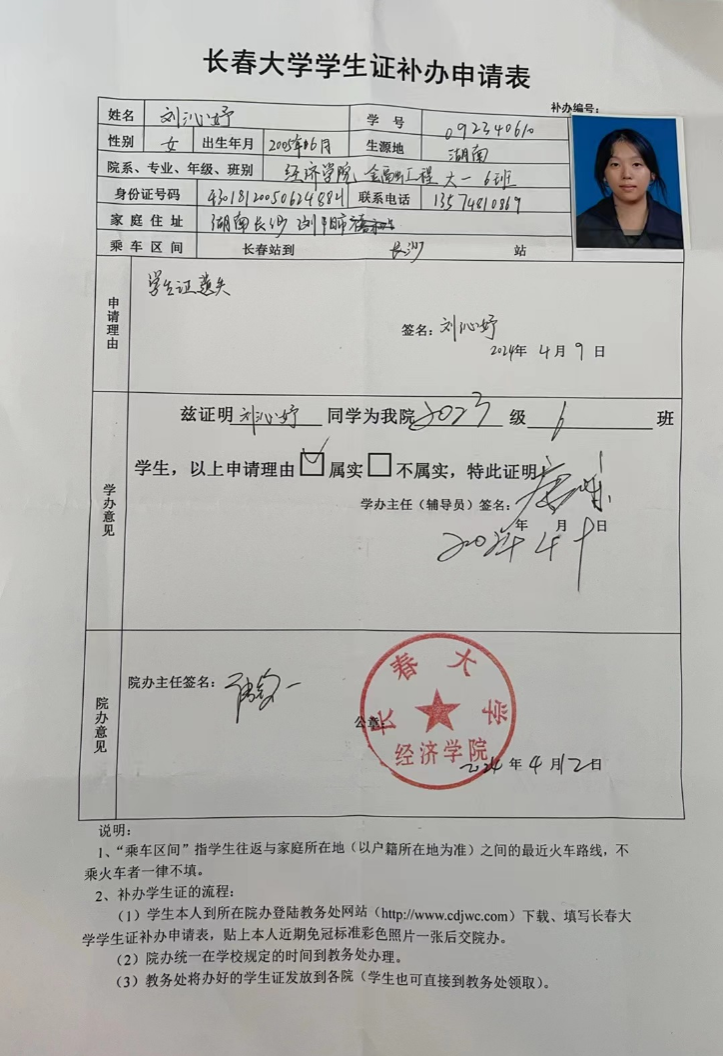 长春大学学生证补办申请表
补办编号：
姓名 刘沁妤 学号 092340610
性别 女 出生年月 2005年06月 生源地 湖南
院系、专业、年级、班别 经济学院 金融工程 大一 6班
身份证号码 联系电话 13574810869
家庭住址 湖南长沙浏阳市
乘车区间 长春站到 长沙 站
申请理由
学生证遗失
签名：刘沁妤
2024年 4 月 9 日
学办意见
兹证明 刘沁妤 同学为我院 2023 级 6 班
学生，以上申请理由 ☑ 属实 ☐ 不属实，特此证明！
学办主任（辅导员）签名：
年 月 日
2024 4
院办意见
院办主任签名：
公章：
长春大学
经济学院
2024 年 4 月 12 日
说明：
1、“乘车区间”指学生往返与家庭所在地（以户籍所在地为准）之间的最近火车路线，不
乘火车者一律不填。
2、补办学生证的流程：
（1）学生本人到所在院办登陆教务处网站（http://www.cdjwc.com）下载、填写长春大
学学生证补办申请表，贴上本人近期免冠标准彩色照片一张后交院办。
（2）院办统一在学校规定的时间到教务处办理。
（3）教务处将办好的学生证发放到各院（学生也可直接到教务处领取）。